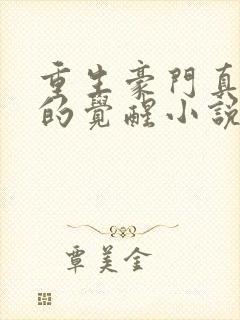 重生豪門真
的覺醒小說
覃美金